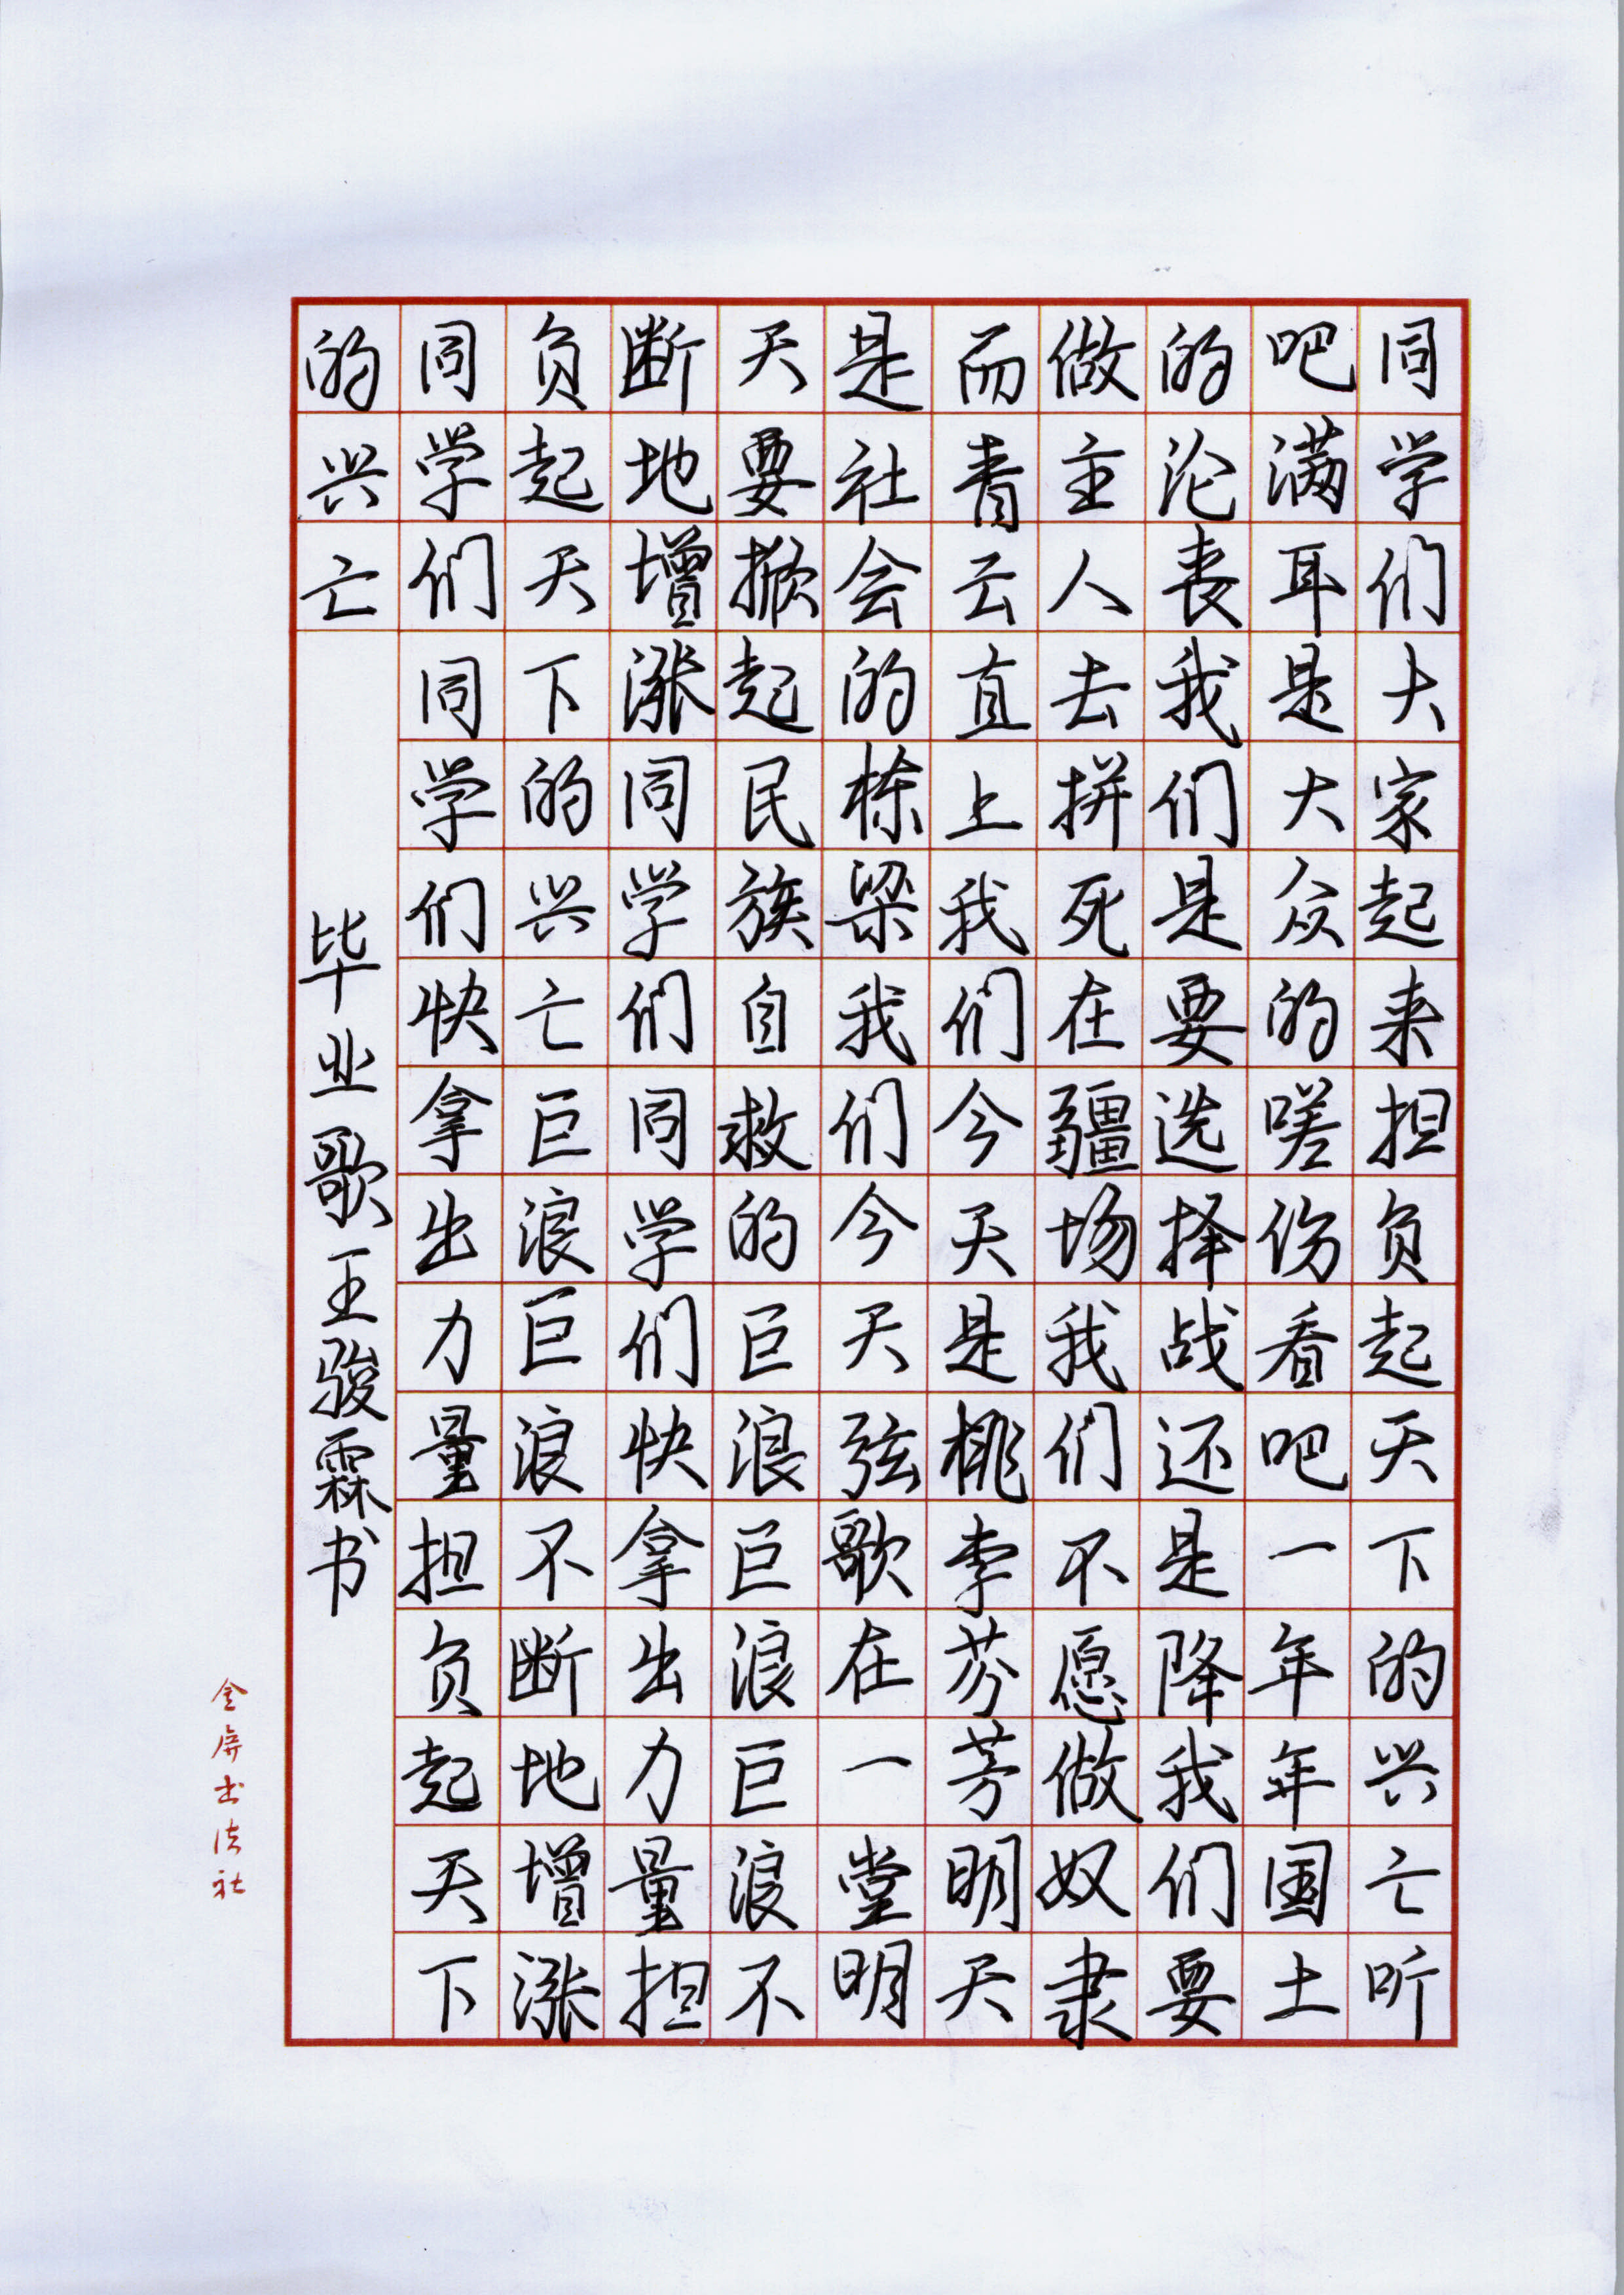 同学们大家起来担负起天下的兴亡听
吧满耳是大众的嗟伤看吧一年年国土
的沦丧我们是要选择战还是降我们要
做主人去拼死在疆场我们不愿做奴隶
而青云直上我们今天是桃李芬芳明天
是社会的栋梁我们今天弦歌在一堂明
天要掀起民族自救的巨浪巨浪巨浪不
断地增涨同学们同学们快拿出力量担
负起天下的兴亡巨浪巨浪不断地增涨
同学们同学们快拿出力量担负起天下
的兴亡
毕业歌王骏霖书
金屏书法社